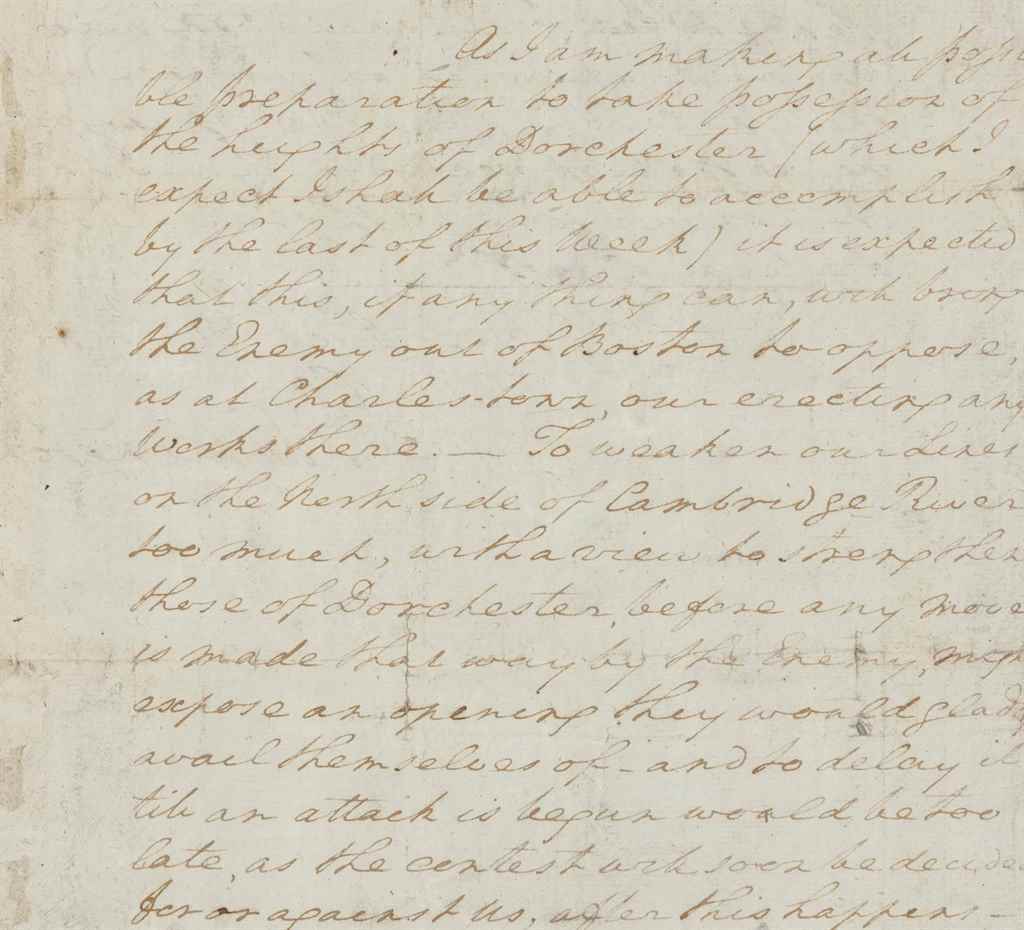 As I am making all possi
ble preparation to take possession of
the heights of Dorchester (which I
expect I shall be able to accomplish
by the last of this Week) it is expected
that this, if any thing can, will bring
the Enemy out of Boston to oppose,
as at Charles-town, our erecting any
Works there. — To weaken our Lines
on the North side of Cambridge River
too much, with a view to strengthen
those of Dorchester, before any move
is made that way by the Enemy, migh
expose an opening they would gladly
avail themselves of - and to delay it
till an attack is begun would be too
late, as the contest will soon be decided
for or against us, after this happens —